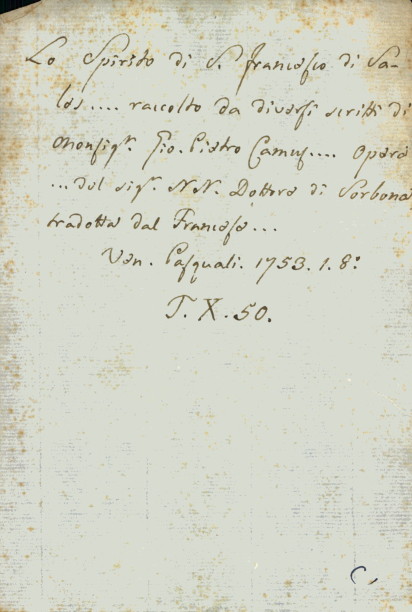 Lo Spirito di S. Francesco di Sa-
les.... raccolto da diversi scritti di
Monsigr. Gio. Pietro Camus.... Opera
...del sigr. N.N. Dottore di Sorbona
tradotta dal Francese...
Ven. Pasquali. 1753. 1. 8:
T. X. 50.